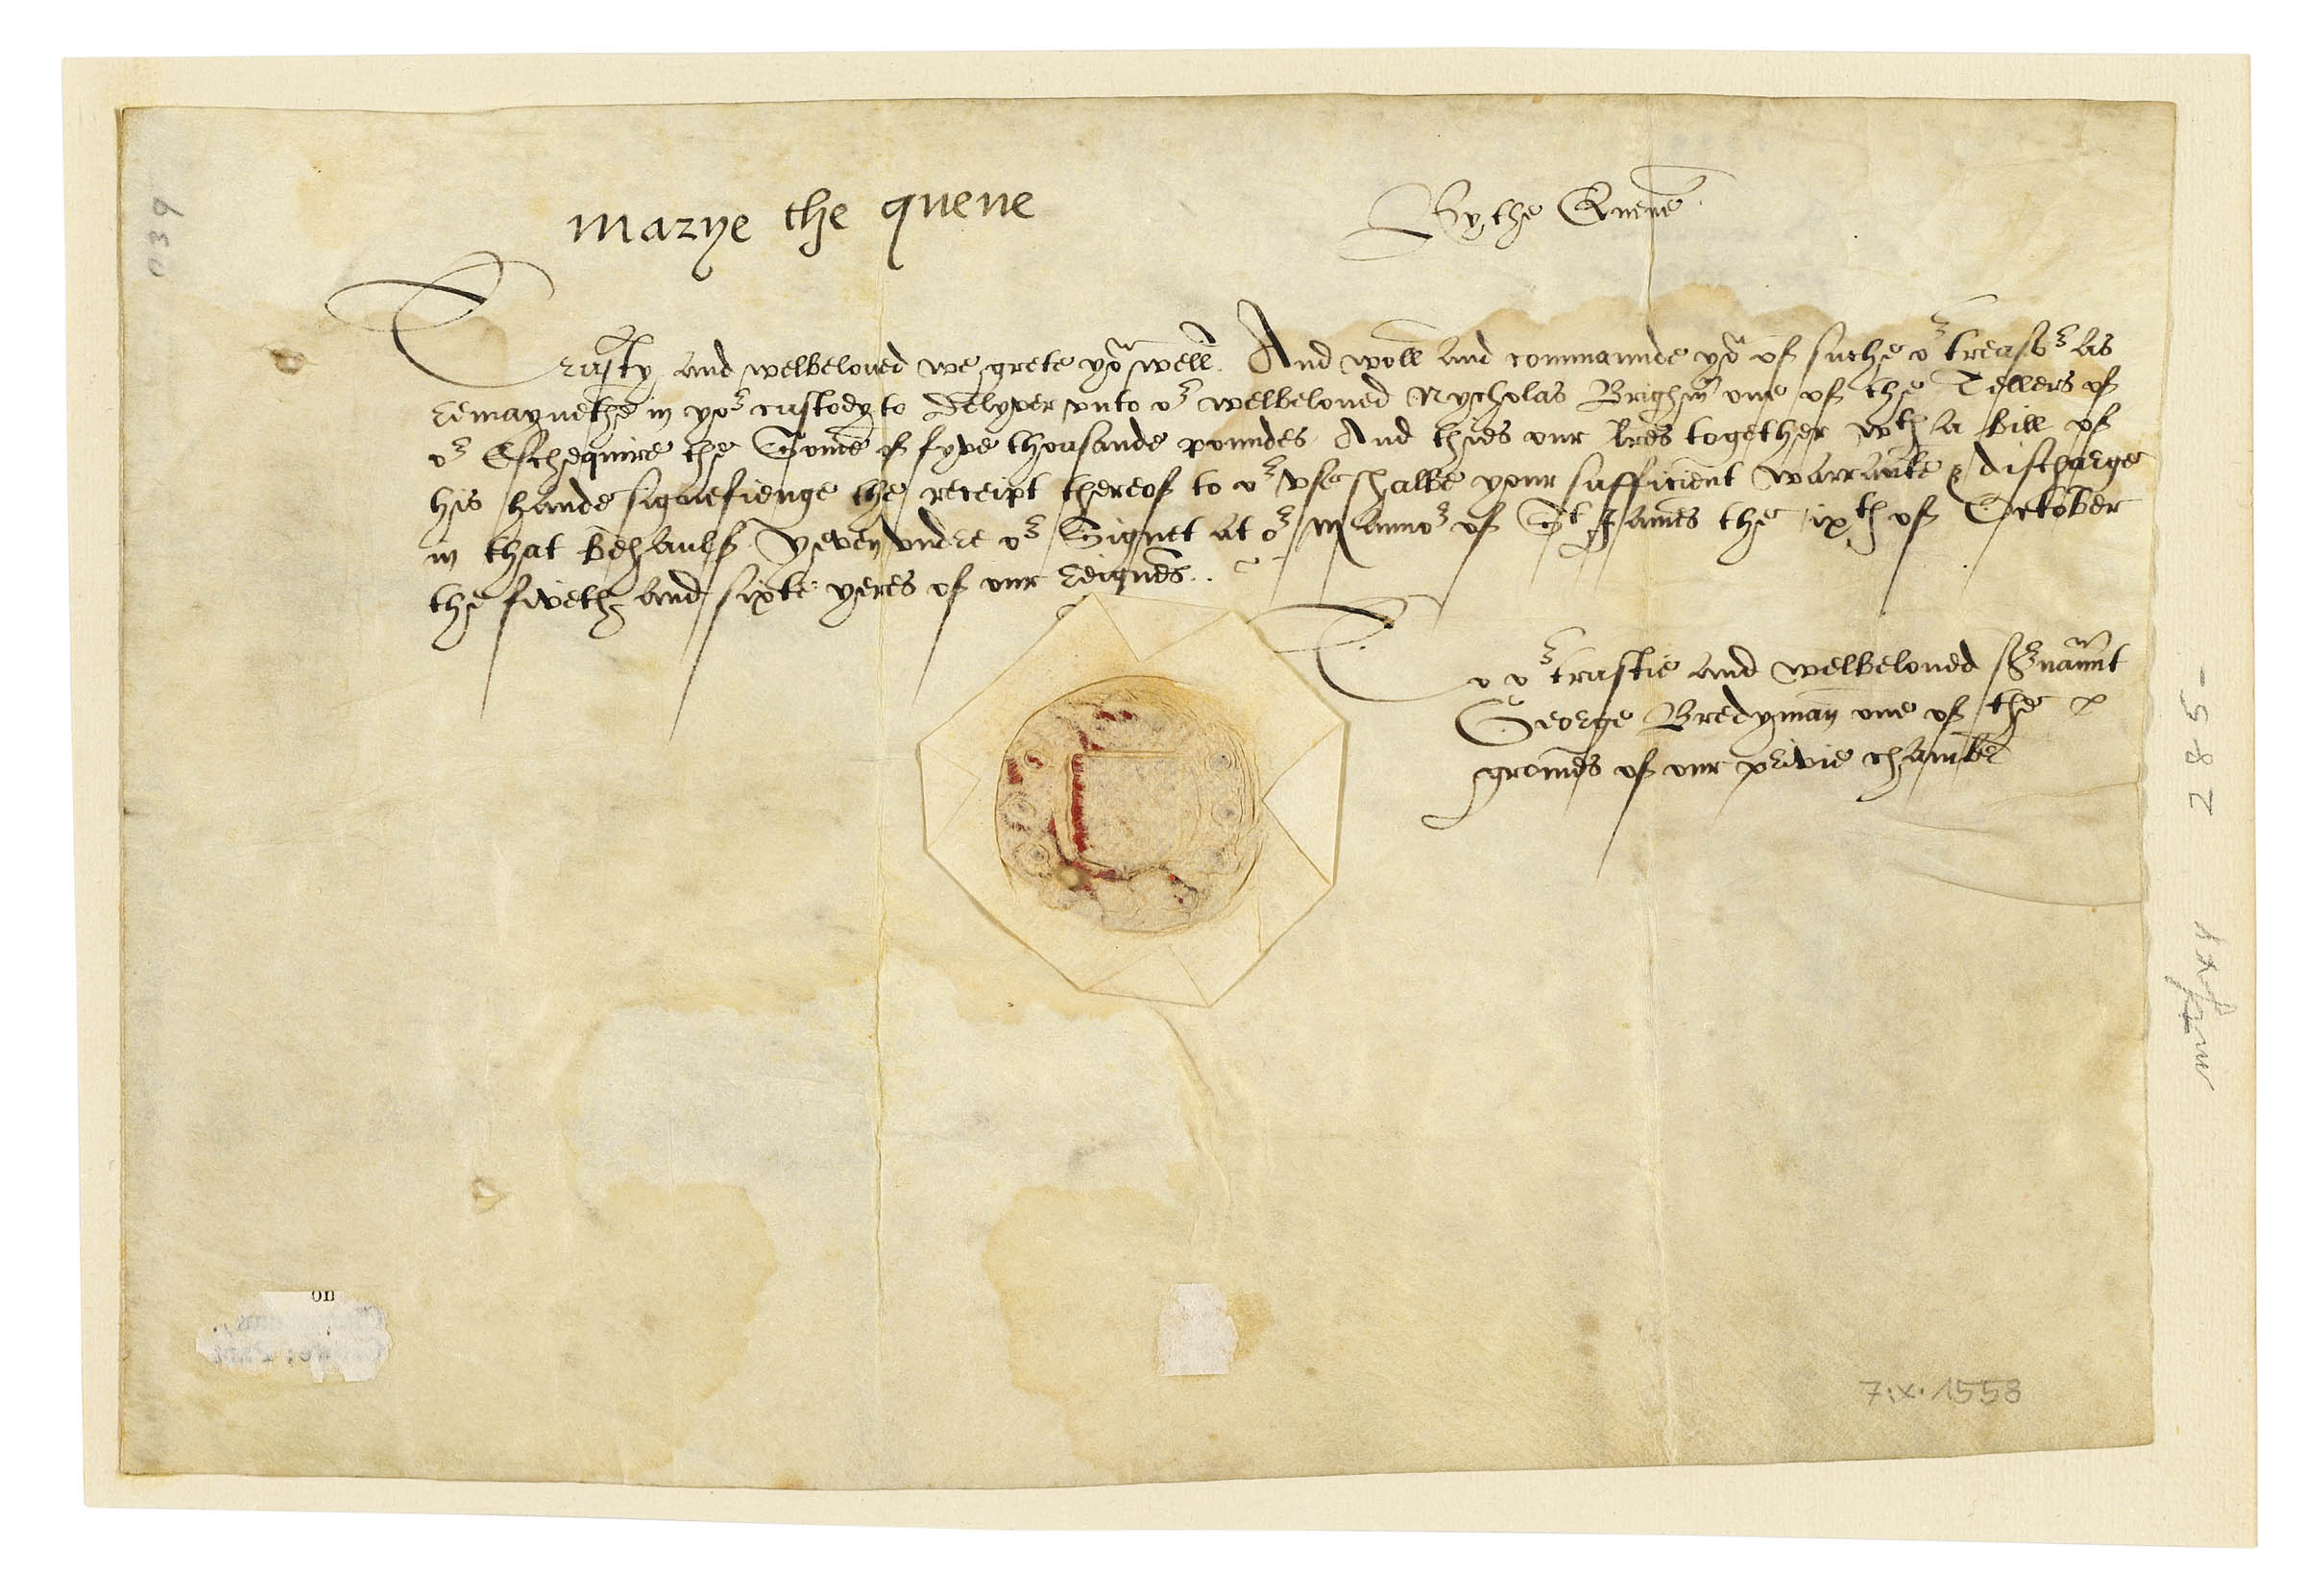 Marye the quene
By the Quene
Trusty and welbeloved we grete yoᵘ well. And woll and commaunde yoᵘ of suche oʳ treasoʳ as
remaynethe in yoʳ custody to delyver vnto oʳ welbeloued Nycholas Brighm one of the Tellers of
oʳ Eschequire the Some of fyve thousande poundes And thies our lres together wᵗh a bill of
his hande signefienge the receipt thereof to oʳ vse shalbe your sufficient warraunte & discharge
in that behaulf. Yeven vndre oʳ Signet at oʳ Mannoʳ of Sᵗ James the ixᵗh of October
the fiveth and sixte yeres of our Reignes.
To oʳ trustie and welbeloued sʳuaunt
George Bredyman one of the
gromes of our privie chambr
039
285-
on
7.X.1558